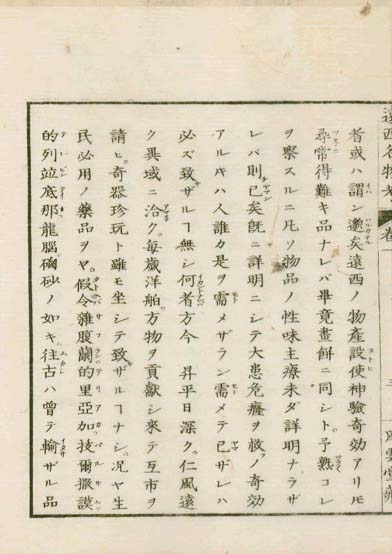 者或ハ謂ン邈矣遠西ノ物産設使神驗奇効アリモ
尋常得難キ品ナレバ畢竟畫餅ニ同シト予熟コレ
ヲ察スルニ凡ソ物品ノ性味主療未ダ詳明ナラザ
レバ則已矣既ニ詳明ニシテ大患危癈ヲ救フノ奇効
アルキハ人誰カ是ヲ需メザラン需メテ已ザレハ
必ズ致ザルヿ無シ何者方今 昇平日深ク仁風遠
ク異域ニ洽ク毎歳洋舶方物ヲ貢獻シ來テ互市ヲ
請ヒ奇器珍玩ト雖モ坐シテ致ザルヿナシ况ヤ生
民必用ノ藥品ヲヤ假令雜腹蘭的里亞加拔爾撒謨
的列竝底那龍腦磠砂ノ如キ往古ハ曾テ輸ザル品
遠西名物考 卷一
風雲堂藏